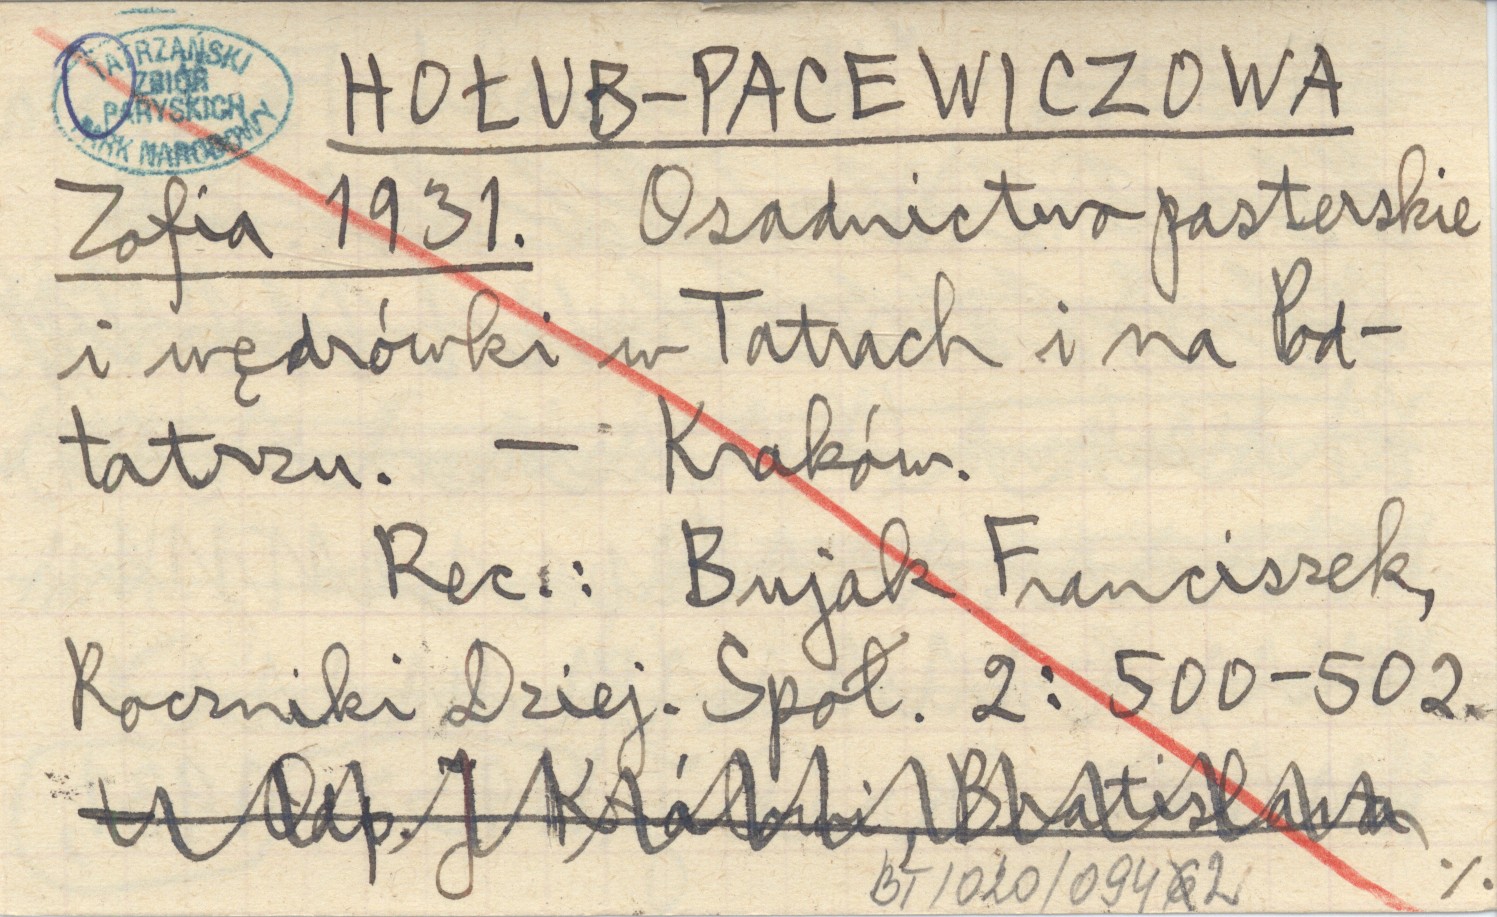 TATRZAŃSKI
ZBIÓR
PARYSKICH
PARK NARODOWY
HOŁUB-PACEWICZOWA
Zofia 1931. Osadnictwo pasterskie
i wędrówki w Tatrach i na Pod-
tatrzu. — Kraków.
Rec.: Bujak Franciszek,
Roczniki Dziej. Społ. 2: 500-502.
Odp. J Bratislava
BT/020/094 2
./.